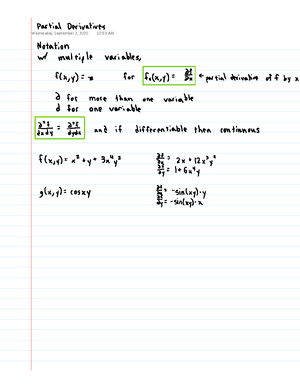 Partial Derivatives
Wednesday, September 2, 2020 12:53 AM
Notation
w/ multiple variables,
f(x,y) = z for fₓ(x,y) = ∂f/∂x ← partial derivative of f by x
∂ for more than one variable
d for one variable
∂²f/∂x∂y = ∂²f/∂y∂x and if differentiable then continuous
f(x,y) = x² + y + 3x⁴y² ∂f/∂x = 2x + 12x³y²
∂f/∂y = 1 + 6x⁴y
g(x,y) = cosxy ∂f/∂x = -sin(xy)·y
∂f/∂y = -sin(xy)·x